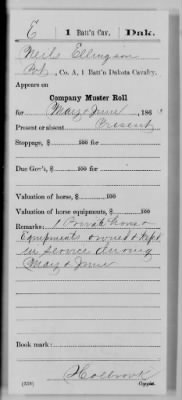 E | 1 Batt'n Cav. | Dak.
Neils Ellingson
Pvt, Co. A, 1 Batt'n Dakota Cavalry.
Appears on
Company Muster Roll
for May & June, 186
Present or absent Present
Stoppage, $ 100 for
Due Gov't, $ 100 for
Valuation of horse, $ 100
Valuation of horse equipments, $ 100
Remarks: 1 Private horse &
Equipments owned & kept
in service during
May & June
Book mark:
Holbrook
(358) Copyist.